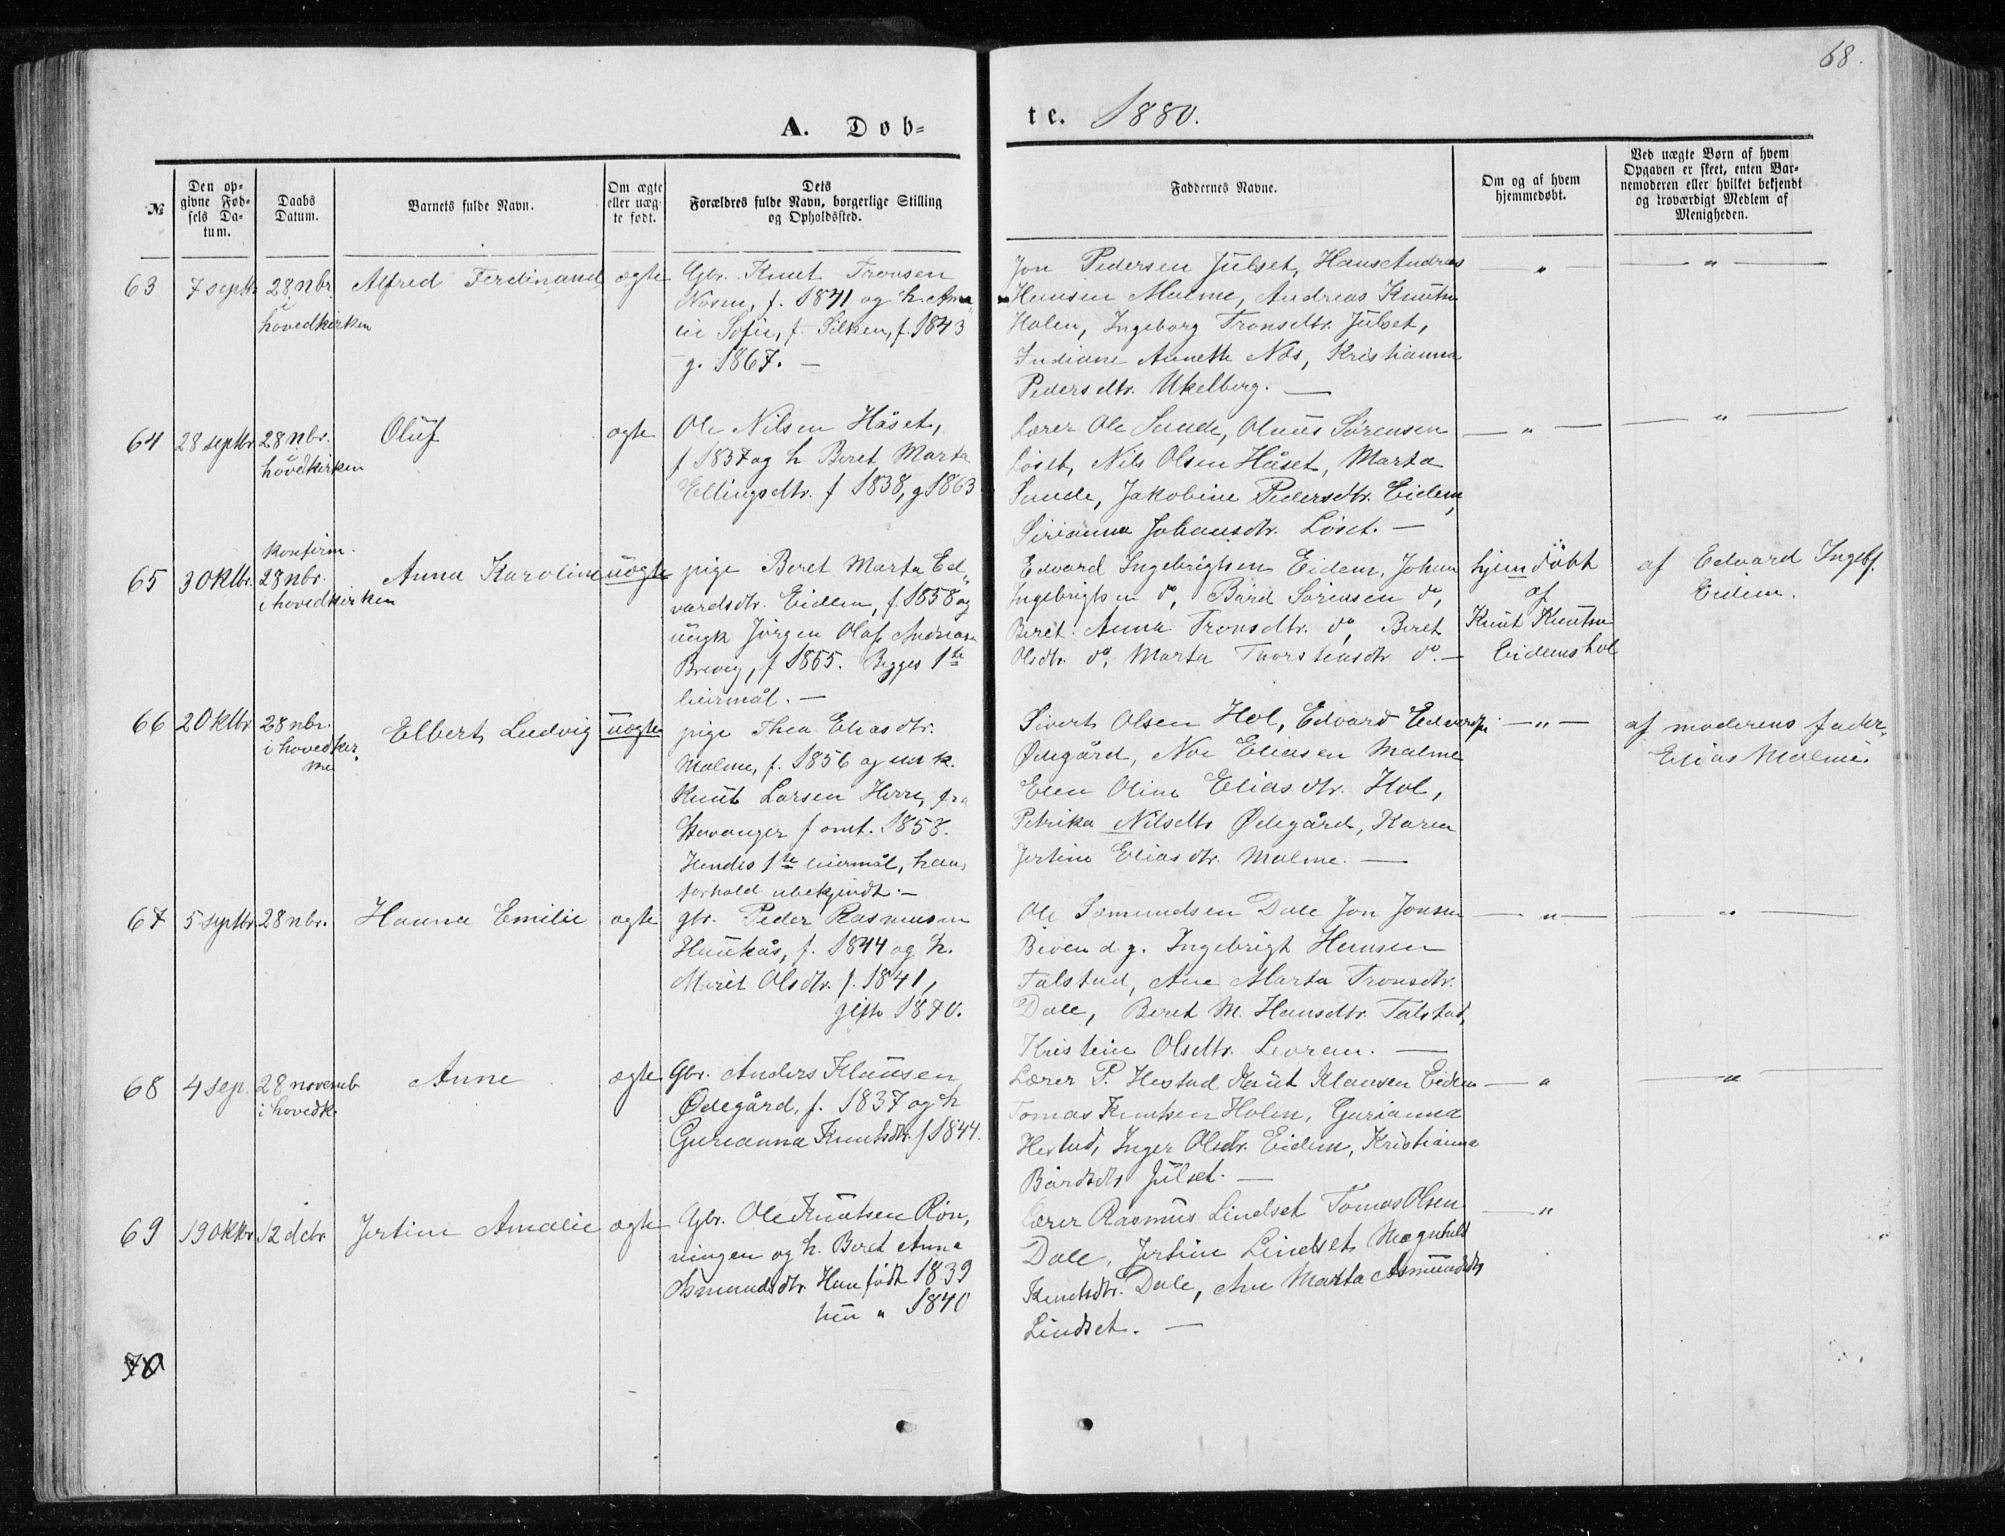 68.
A. Døb-
te. 1880.
№
Den op-
givne Fød-
sels Da-
tum.
Daabs
Datum.
Barnets fulde Navn.
Om ægte
eller uæg-
te født.
Dets
Forældres fulde Navn, borgerlige Stilling
og Opholdssted.
Faddernes Navne.
Om og af hvem
hjemmedøbt.
Ved uægte Børn af hvem
Opgaven er skeet, enten Bar-
nemoderen eller hvilket bekjendt
og troværdigt Medlem af
Menigheden.
63
7 septbr.
28 nbr.
i
hovedkirken
Alfred Ferdinand
ægte
Gbr. Knut Tronsen
f. 1841 og h.
Sofie, f. Silken, f. 1843
g. 1867. —
Jon Pedersen Julset, Hans Andreas
Hansen Malme, Andreas Knutsn
Holen, Ingeborg Tronsdtr. Julset,
Indiane Annette Næs, Kristianna
Pedersdtr. Ukelberg. —
— „ —
— „ —
64
28 septbr.
28 nbr.
i
hovedkirken
Oluf
ægte
Ole Nilsen Håset,
f 1837 og h Beret Marta
Ellingsdtr. f 1838, g 1863
Lærer Ole Sunde, Olaus Sørensen
Löset, Nils Olsen Håset, Marta
Sunde, Jakobine Pedersdtr. Eidem,
Sirianna Johansdtr. Löset. —
— „ —
— „ —
65
3 oktbr.
konfirm.
28 nbr.
i hovedkirken
Anna Karoline
uægte
pige Beret Marta Ed„
vardsdtr. Eidem, f. 1858 og
ungk Jørgen Olaf Andreasn
Brevig, f 1855. Begges 1te
leiermål. —
Edvard Ingebrigtsen Eidem, Johan
Ingebrigtsen do, Bård Sörensen do,
Beret Anna Tronsdtr. do, Beret
Olsdtr. do, Marta Thorstensdtr do. —
hjemdöbt
af
Knut Knutsn
Eidemshol
af Edvard Ingebr.
Eidem.
66
2 oktbr.
28 nbr.
i hovedkir„
Elbert Ludvig
uægte
pige Thea Eliasdtr.
Malme, f. 1856 og
Knut Larsen fra
Stavanger f omt. 1858.
Hendes 1te leiermål, hans
forhold ubekjendt. —
Sivert Olsen Hol, Edvard
Ødegård, Noe Eliasen Malme
Elen Oline Eliasdtr. Hol,
Petrika Nilsdtr Ødegård, Karen
Jertine Eliasdtr. Malme. —
— „ —
af moderens fader
Elias Malme.
67
5 septbr.
28 nbr.
Hanna Emilie
ægte
gbr. Peder Rasmusen
Haukås, f. 1844 og h.
Marit Olsdtr. f. 1841,
gifte 1870.
Ole Sæmundsen Dale Jon Jonsen
d. y. Ingebrigt Hansen
Talstad, Ane Marta Tronsdtr.
Dale, Beret M. Hansdtr. Talstad,
Kristine Olsdtr. Levran. —
— „ —
— „ —
68
4 sep.
28 novemb
i hovedk.
Anne
ægte
Gbr. Anders Klausen
Ødegård, f. 1837 og h
Gurianna Knutsdtr. f 1844.
Lærer P. Hestad Knut Klausen Eidem
Tomas Knutsen Holen, Gurianna
Hestad, Inger Olsdtr. Eidem, Kristianna
Bårdsdtr Julset. —
— „
— „ —
69
19 oktbr
12 dcbr
Jertine Amalie
ægte
Gbr. Ole Knutsen Rön„
ningen og h. Beret Anna
Asmundsdtr. Han født 1839
hun „ 1840
Lærer Rasmus Lindset Tomas Olsen
Dale, Jertine Lindset Magnhild
Knutsdtr. Dale, Ane Marta Asmundsdtr
Lindset. —
— „
70